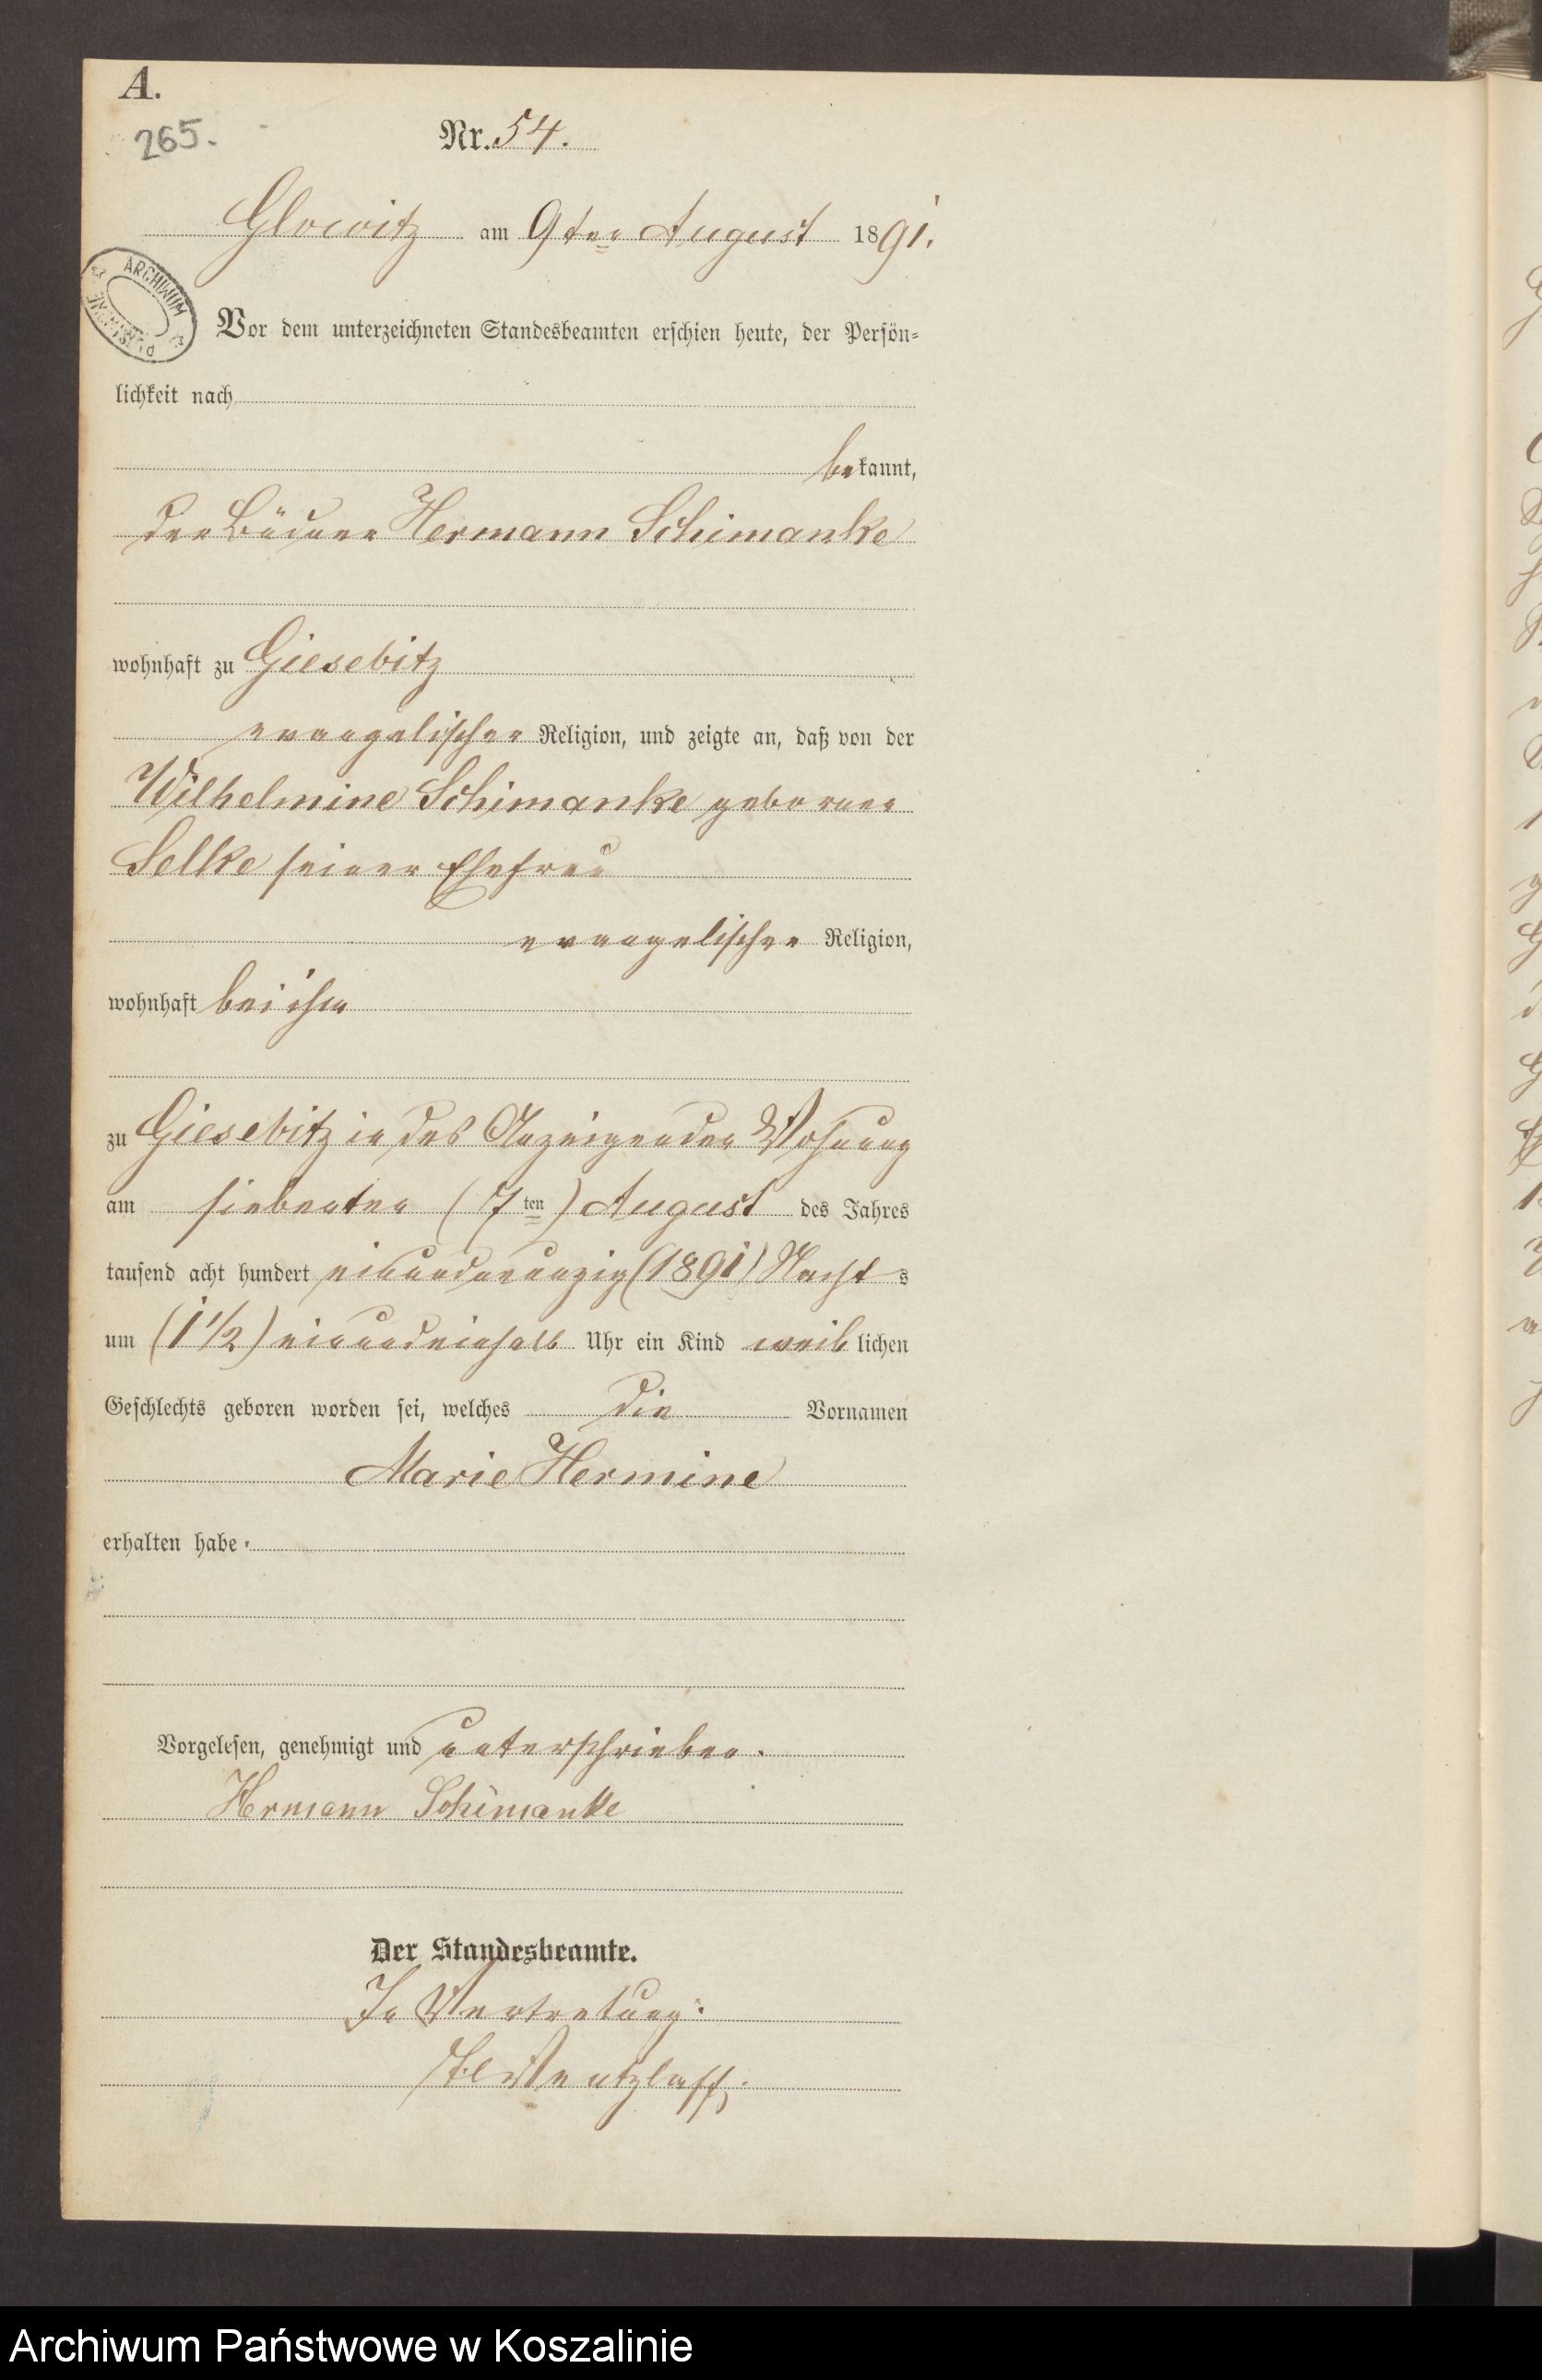 A.
265.
Nr. 54.
Glowitz am 9ten August 1891.
ARCHIWUM
Vor dem unterzeichneten Standesbeamten erschien heute, der Persön-
lichkeit nach
bekannt,
der Büdner Hermann Schimanke
wohnhaft zu Giesebitz
evangelischer Religion, und zeigte an, daß von der
Wilhelmine Schimanke geborner
Selke seiner Ehefrau
evangelischer Religion,
wohnhaft bei ihm
zu Giesebitz in des Anzeigenden Wohnung
am siebenten (7ten) August des Jahres
tausend acht hundert einundneunzig (1891) Nachts
um (1 1/2) einundeinhalb Uhr ein Kind weiblichen
Geschlechts geboren worden sei, welches die Vornamen
Marie Hermine
erhalten habe.
Vorgelesen, genehmigt und unterschrieben.
Hermann Schimanke
Der Standesbeamte.
In Vertretung:
Wentzlaff.
Archiwum Państwowe w Koszalinie